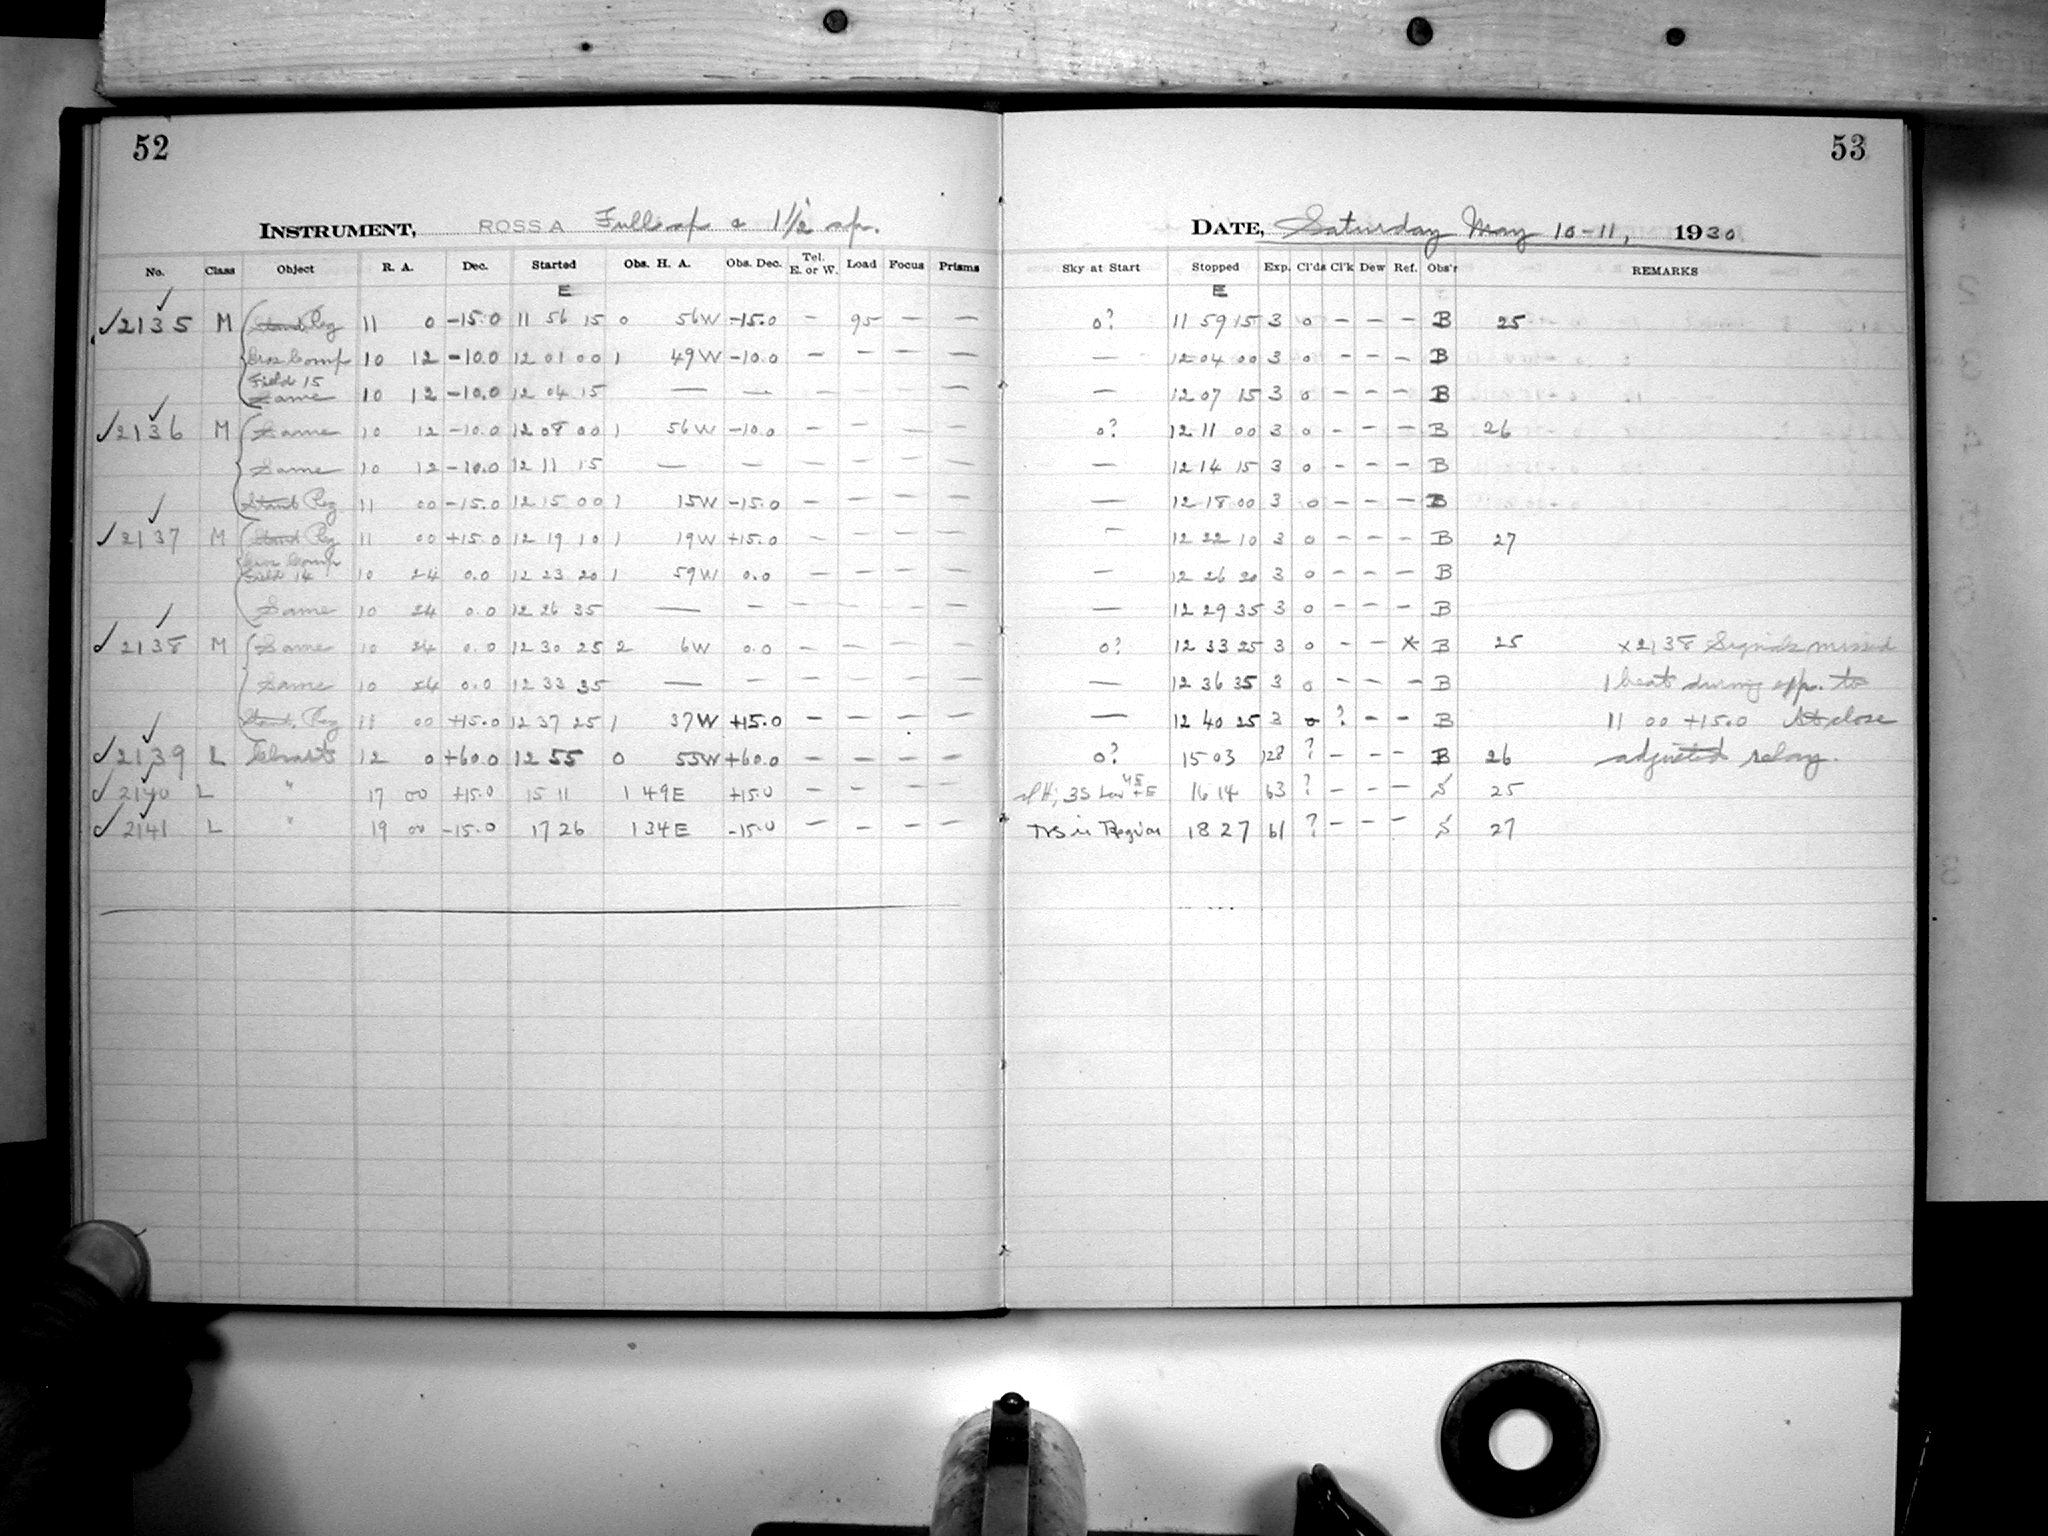 52
53
INSTRUMENT, ROSS A Full ap & 1 1/2 ap.
DATE, Saturday May 10-11, 1930
No. Class Object R. A. Dec. Started Obs. H. A. Obs. Dec. Tel. E. or W. Load Focus Prisms Sky at Start Stopped Exp. Cl'ds Cl'k Dew Ref. Obs'r REMARKS
E E
✓2135 M Stand Reg 11 0 -15.0 11 56 15 0 56W -15.0 - 95 - - 0? 11 59 15 3 0 - - - B 25
Comp 10 12 -10.0 12 01 00 1 49W -10.0 - - - - - 12 04 00 3 0 - - - B
Field 15
Same 10 12 -10.0 12 04 15 - - - - 12 07 15 3 0 - - - B
✓2136 M Same 10 12 -10.0 12 08 00 1 56W -10.0 - - - - 0? 12 11 00 3 0 - - - B 26
Same 10 12 -10.0 12 11 15 - - - - - - - 12 14 15 3 0 - - - B
Stand Reg 11 00 -15.0 12 15 00 1 15W -15.0 - - - - - 12 18 00 3 0 - - - B
✓2137 M Stand Reg 11 00 +15.0 12 19 10 1 19W +15.0 - - - - - 12 22 10 3 0 - - - B 27
Comp
Field 14 10 24 0.0 12 23 20 1 59W 0.0 - - - - - 12 26 20 3 0 - - - B
Same 10 24 0.0 12 26 35 - - - - - - - 12 29 35 3 0 - - - B
✓2138 M Same 10 24 0.0 12 30 25 2 6W 0.0 - - - - 0? 12 33 25 3 0 - - x B 25 x2138 Signals missed
Same 10 24 0.0 12 33 35 - - - - - - - 12 36 35 3 0 - - - B 1 beat during exp. to
Stand. Reg 11 00 +15.0 12 37 25 1 37W +15.0 - - - - - 12 40 25 3 0 ? - - B 11 00 +15.0 At close
✓2139 L Charts 12 0 +60.0 12 55 0 55W +60.0 - - - - 0? 15 03 128 ? - - - B 26 adjusted relay.
✓2140 L " 17 00 +15.0 15 11 1 49E +15.0 - - - - 16 14 63 ? - - - S 25
✓2141 L " 19 00 -15.0 17 26 1 34E -15.0 - - - - in Region 18 27 61 ? - - - S 27